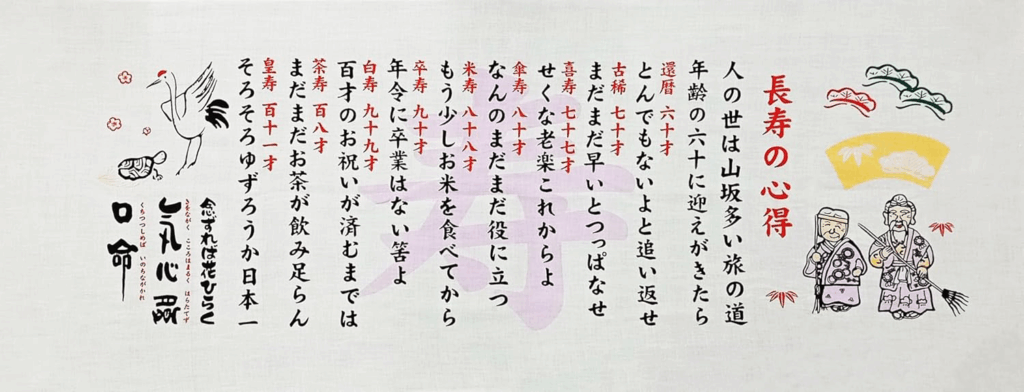 長寿の心得
人の世は山坂多い旅の道
年齢の六十に迎えがきたら
還暦 六十才
とんでもないよと追い返せ
古稀 七十才
まだまだ早いとつっぱなせ
喜寿 七十七才
せくな老楽これからよ
傘寿 八十才
なんのまだまだ役に立つ
米寿 八十八才
もう少しお米を食べてから
卒寿 九十才
年令に卒業はない筈よ
白寿 九十九才
百才のお祝いが済むまでは
茶寿 百八才
まだまだお茶が飲み足らん
皇寿 百十一才
そろそろゆずろうか日本一
寿
念ずれば花ひらく
きをながく こころはまるく はらたてず
くちつつしめば いのちながかれ